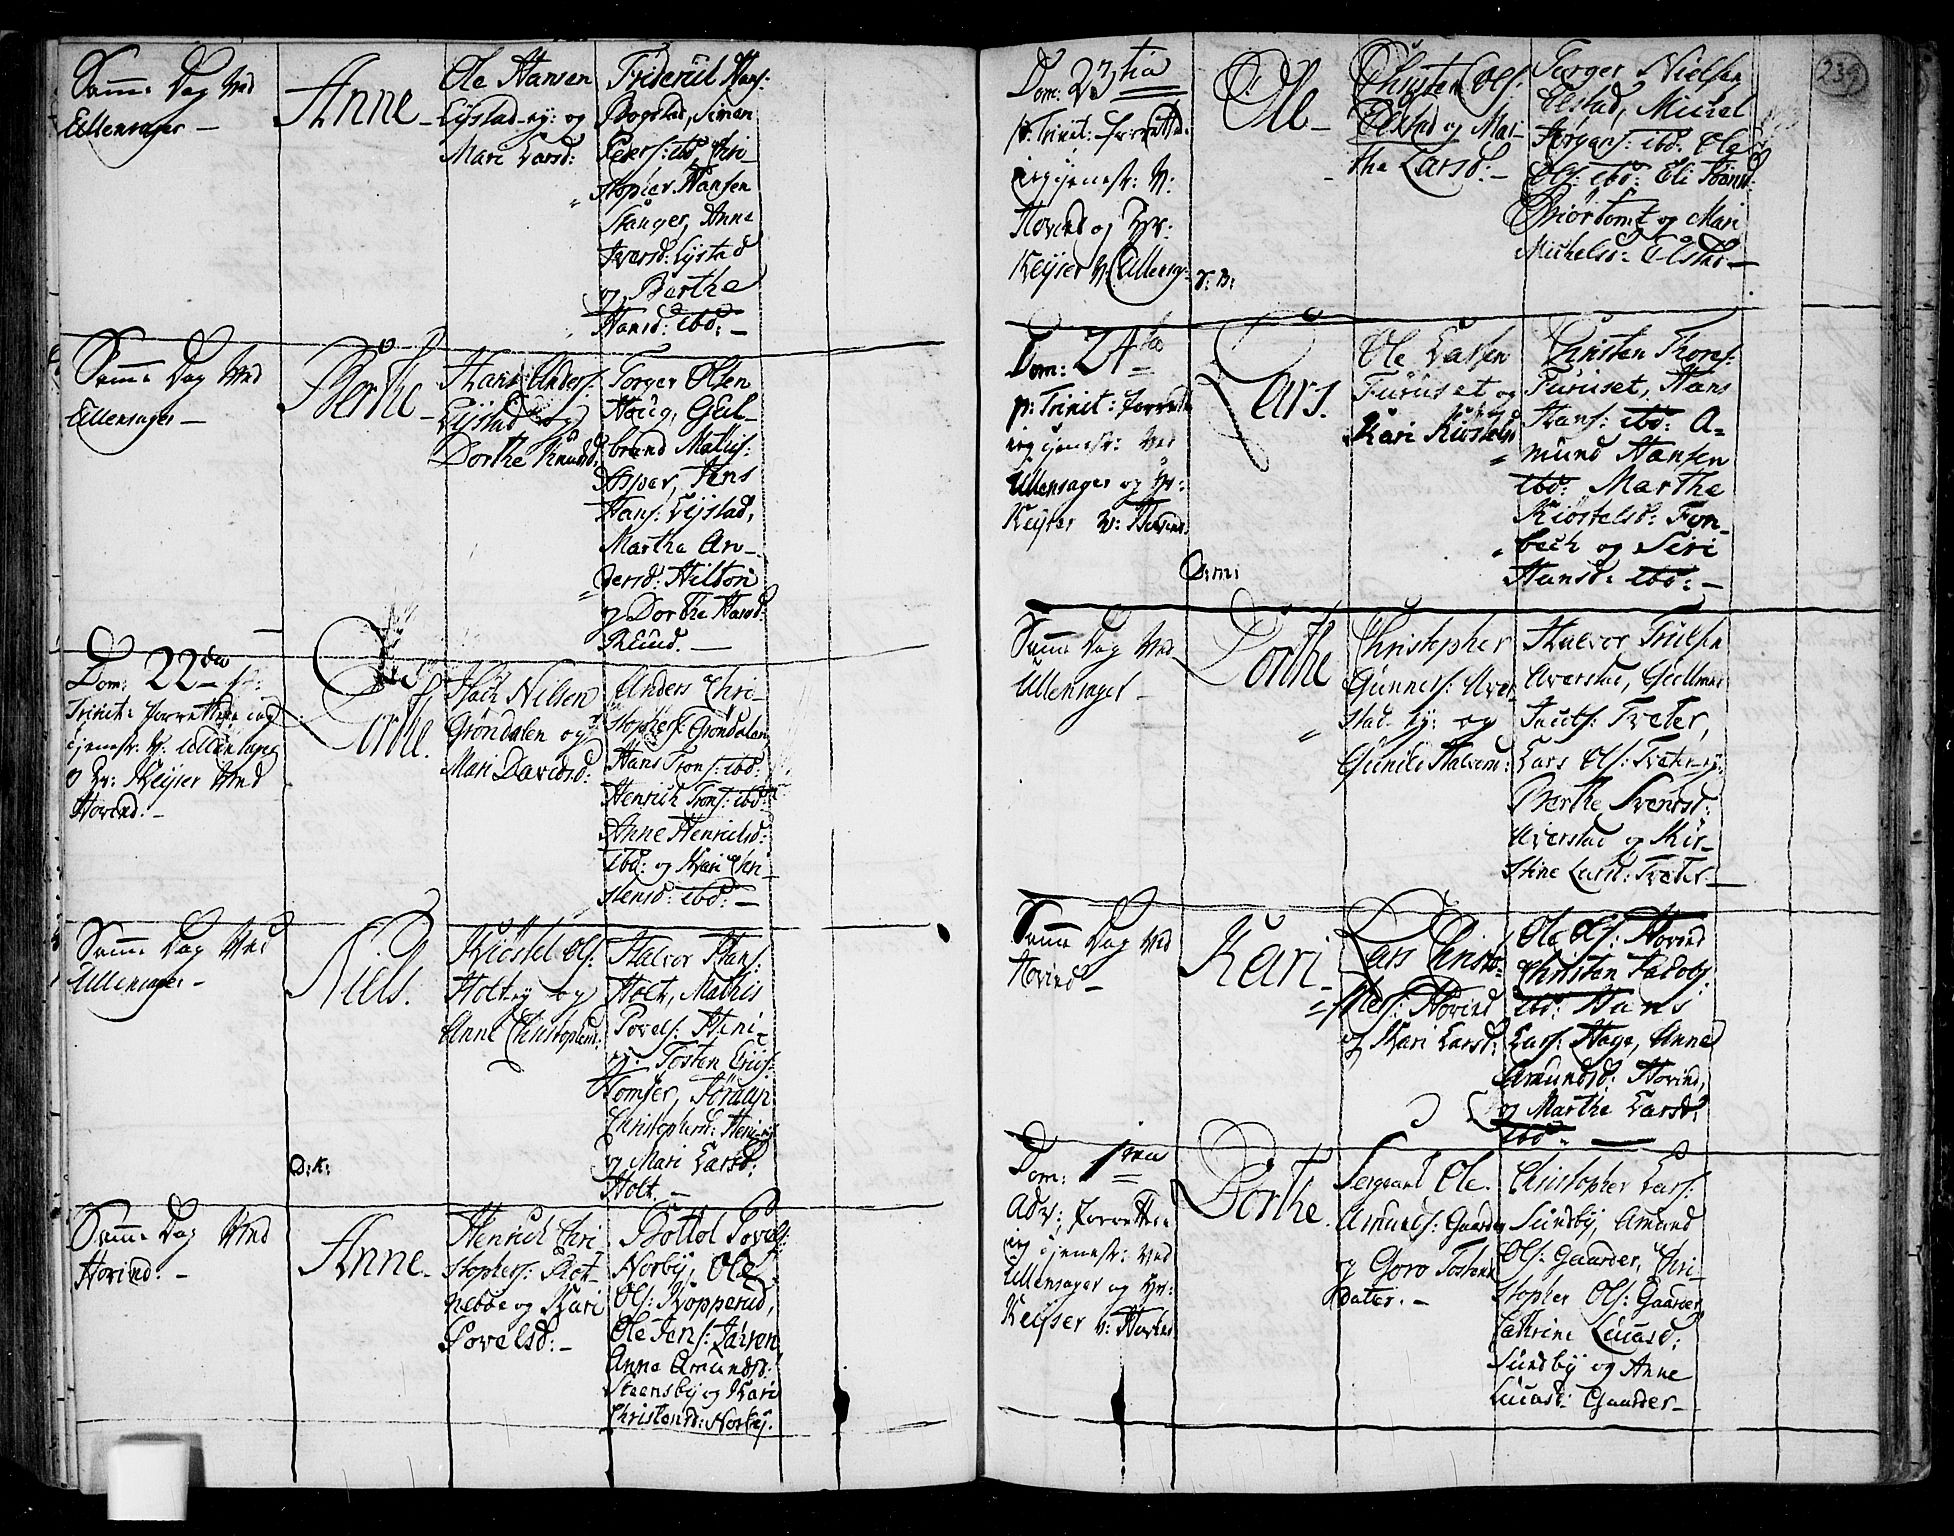 Samme Dag Ved
Ullensager —
Anne
Ole Hansen
Lystad-ey: og
Mari Larsd:
Friderich Hans:
Bogstad, Simen
Peders: ibd, Chri-
stopher Hansen
Stanger, Anne
Iversd: Lystad
og Berthe
Hansd: ibd: —
Samme Dag Ved
Ullensager —
Berthe
Hans Anders:
Lystad og
Dorthe Knudsd:
Torger Olsen
Houg, Gul-
brand Mathis:
Asper, Jens
Hans: Lystad,
Martha An-
dersd: Hilton
og Dorthe Hansd:
Risund. —
Dom: 22da p:
Trinit: forrettede ieg
tjenest: V: Ullensager
og Hr: Keyser Ved
Hovind. —
Dorthe.
Nilsen
Grøndalen og
Mari Davidsd:
Anders Chri-
stophers: Grøndalen,
Hans Trons: ibd:
Henrich Trons: ibd:
Anne Henrichsd:
ibd: og Kari Chri-
stensd: ibd: —
Samme Dag Ved
Ullensager —
Niels.
Kiøstel Ols:
Holt-ey og
Anne Christophersd:
Halvor Hans:
Holt, Mathis
Povels: Heni-
ey: Tosten Erichs:
Homler, Jøran
Christophersd: Heni-ey:
og Mari Larsd:
Holt. —
D: K:
Samme Dag Ved
Hovind. —
Anne.
Henrich Chri-
stophers: Rot-
nebbe og Kari
Povelsd: —
Bottol Povels:
Norby, Ole
Ols: Kopperud,
Ole Jens: Jahren
Anne Amundsd:
Steensby og Kari
Christensd: Norby.
239
Dom: 23tia
p: Trinit: forrettede
ieg tjenest: V:
Hovind og Hr:
Keyser V: Ullensag:
D: B:
Ole —
Christen Ols:
Elstad og Mar-
tha Larsd: —
Torger Nielsen
Elstad, Michel
Torgers: ibd: Ole
Ols: ibd: Eli
Biørtomt og Mari
Michelsd: Elstad —
Dom: 24ta
p: Trinit: forrettede
ieg tjenest: Ved
Ullensager og Hr:
Keyser V: Hovind.
D: M:
Lars.
Ole Larsen
Furuset og
Kari Kiøstelsd
Christen Thors:
Furuset, Hans
Hans: ibd: A-
mund Hansen
ibd: Marthe
Kiøstelsd: Fon-
bech og Siri
Hansd: ibd: —
Samme Dag Ved
Ullensager —
Dorthe
Christopher
Gunners: Aver-
stad-ey: og
Gunild Halvorsd:
Halvor Truelsen
Averstad,
Tveter,
Lars Ols: Tveter-ey:
Berthe Svendsd:
Averstad og Kir-
stine Larsd: Tveter. —
Samme Dag Ved
Hovind —
Kari —
Lars Christo-
phers: Hovind
og Kari Larsd:
Ole Ols: Hovind
Christen
ibd: Hans
Lars: Hage, Anne
Amundsd: Hovind,
og Marthe Larsd:
ibd: —
Dom: 1ma
Adv: forrettede
ieg tjenest: Ved
Ullensager og Hr:
Keyser V: Hovind
Berthe.
Sergeant Ole
Amunds: Gaarder
og Goro Tostens
Datter. —
Christopher Lars:
Sundby, Amund
Ols: Gaarder, Chri-
stopher Ols: Gaarder
Cathrine Lucasd:
Sundby og Anne
Lucasd: Gaarder —